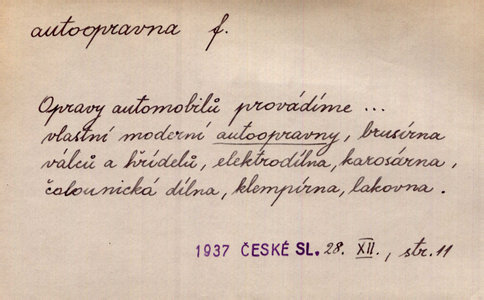 autoopravna f.
Opravy automobilů provádíme ...
vlastní moderní autoopravny, brusírna
válců a hřídelů, elektrodílna, karosárna,
čalounická dílna, klempírna, lakovna.
1937 ČESKÉ SL. 28. XII., str. 11